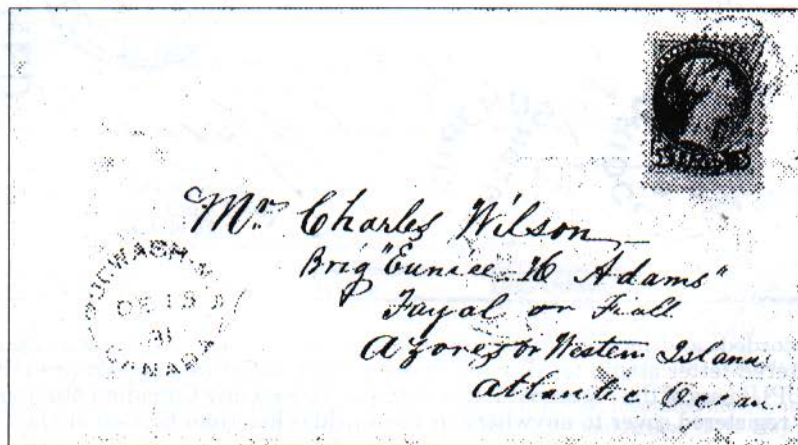 Mr. Charles Wilson
Brig "Eunice H Adams"
Fayal or Fiall
Azores or Western Island
Atlantic Ocean
PUGWASH
DE 19
CANADA